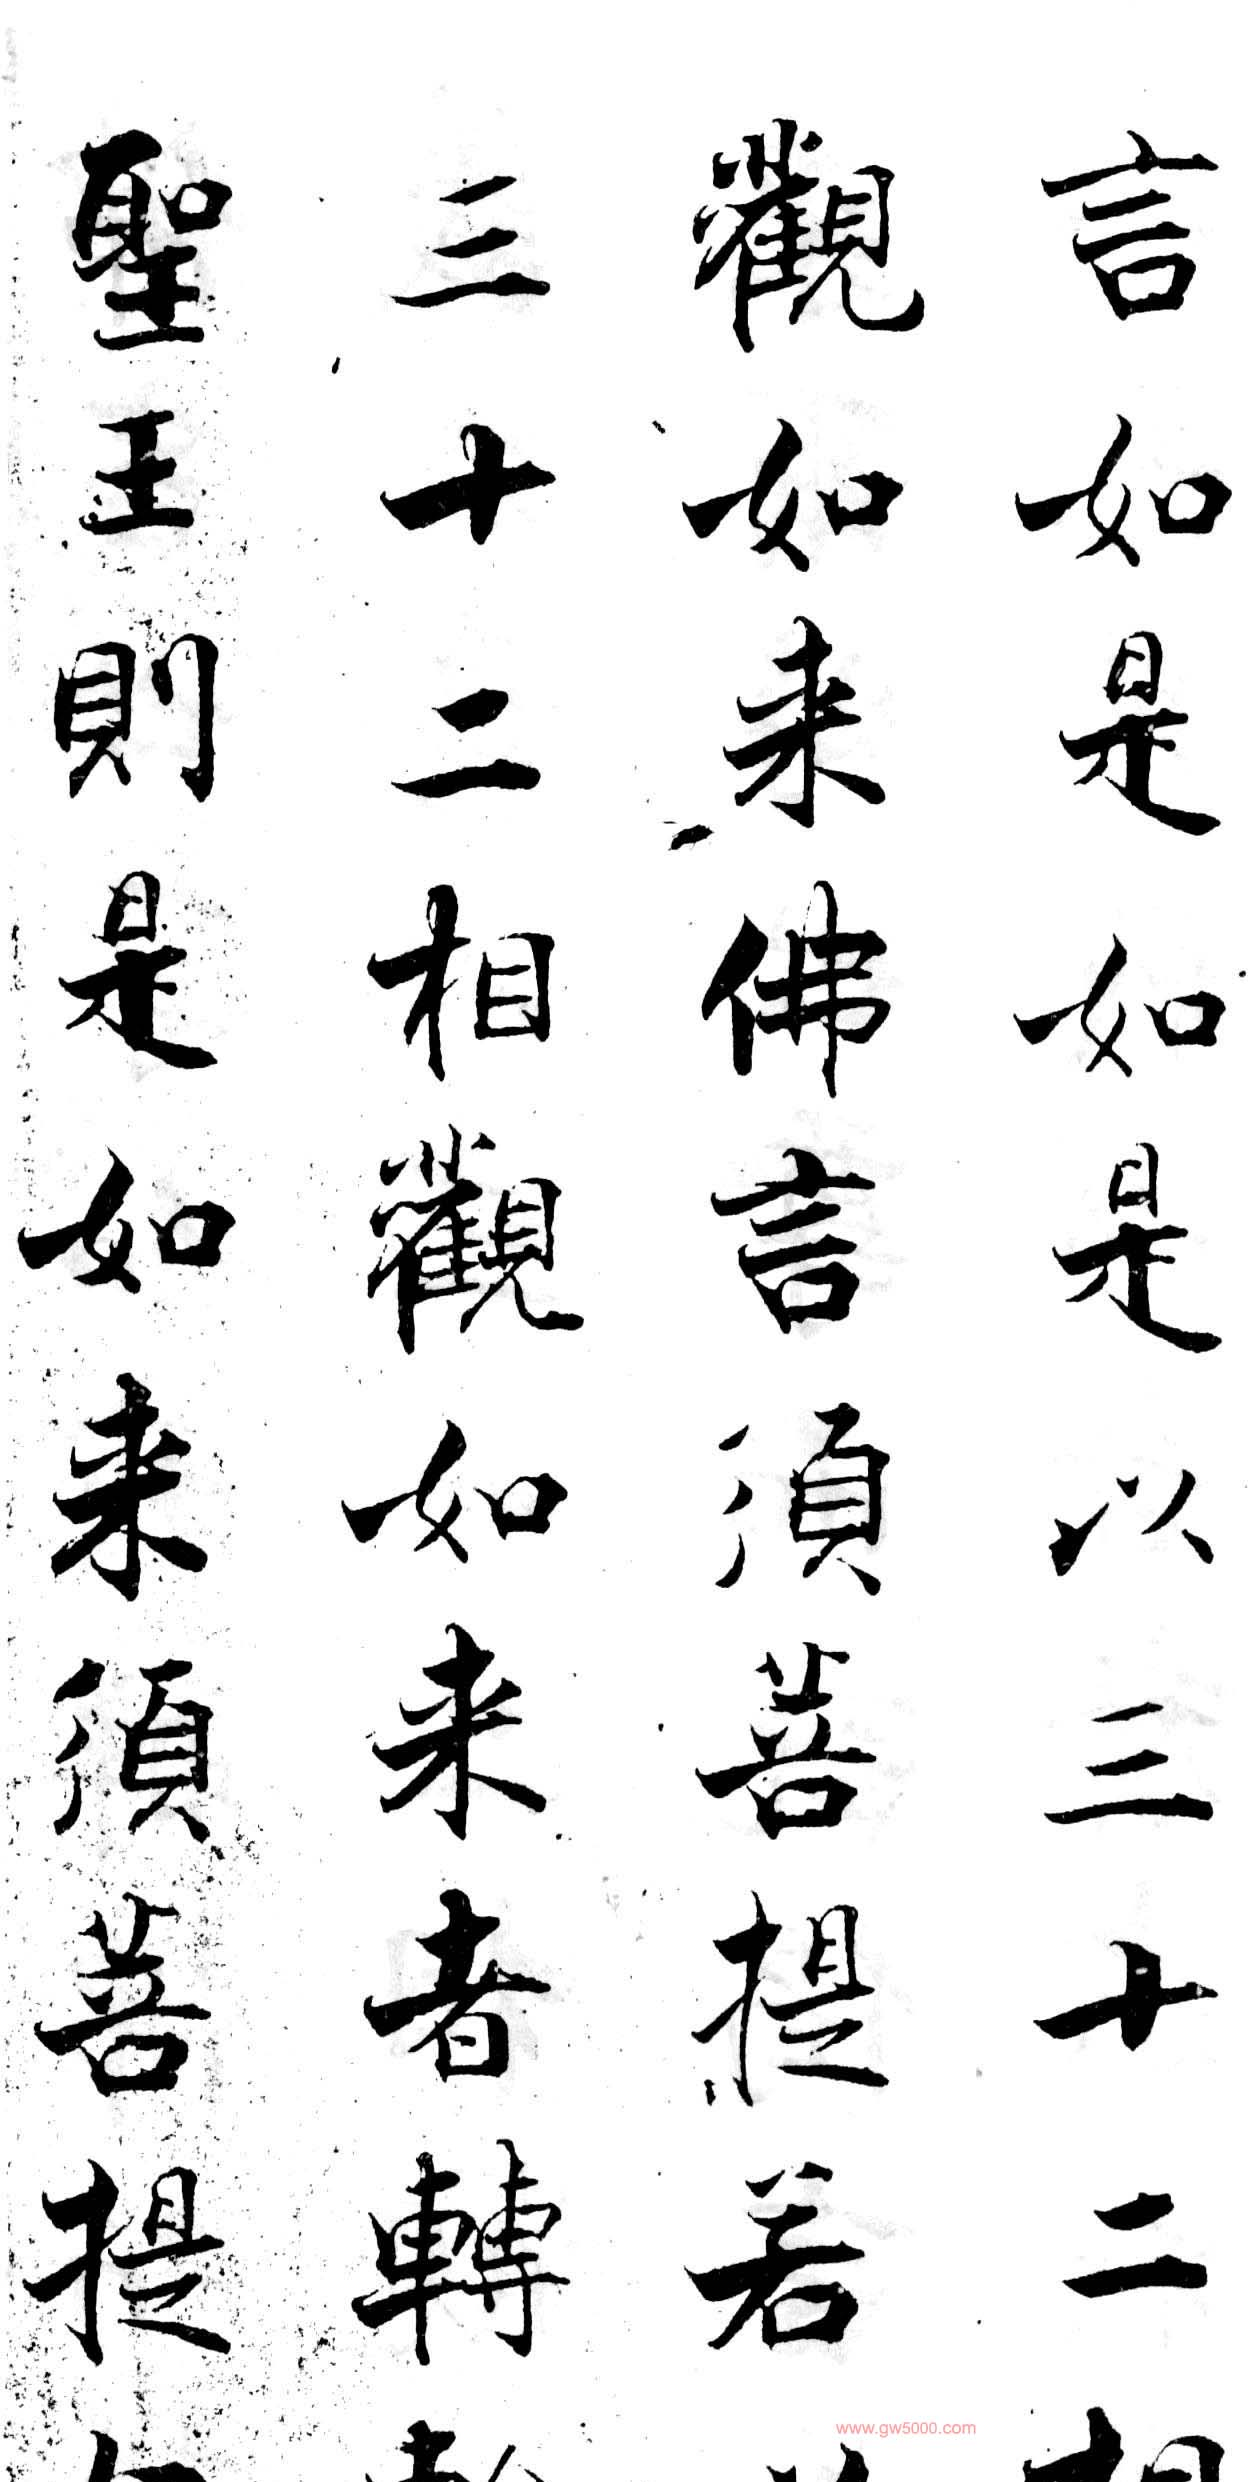 言如是如是以三十二相
觀如来佛言須菩提若以
三十二相觀如来者轉輪
聖王則是如来須菩提
www.gw5000.com